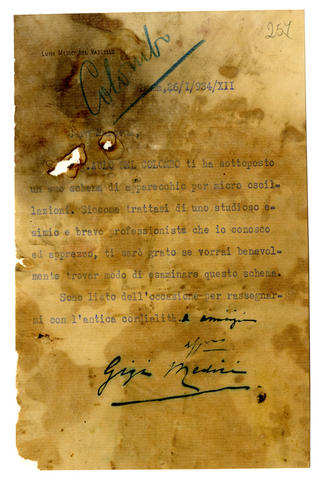 257
LUIGI MEDICI DEL VASCELLO
Colombo
26/1/934/XII
DEL COLOMBO ti ha sottoposto
un suo schema di apparecchio per micro oscil-
lazioni. Siccome trattasi di uno studioso e-
simio e bravo professionista che io conosco
ed apprezzo, ti sarò grato se vorrai benevol-
mente trovar modo di esaminare questo schema.
Sono lieto dell'occasione per rassegnar-
mi con l'antica cordialità e amicizia
Gigi Medici